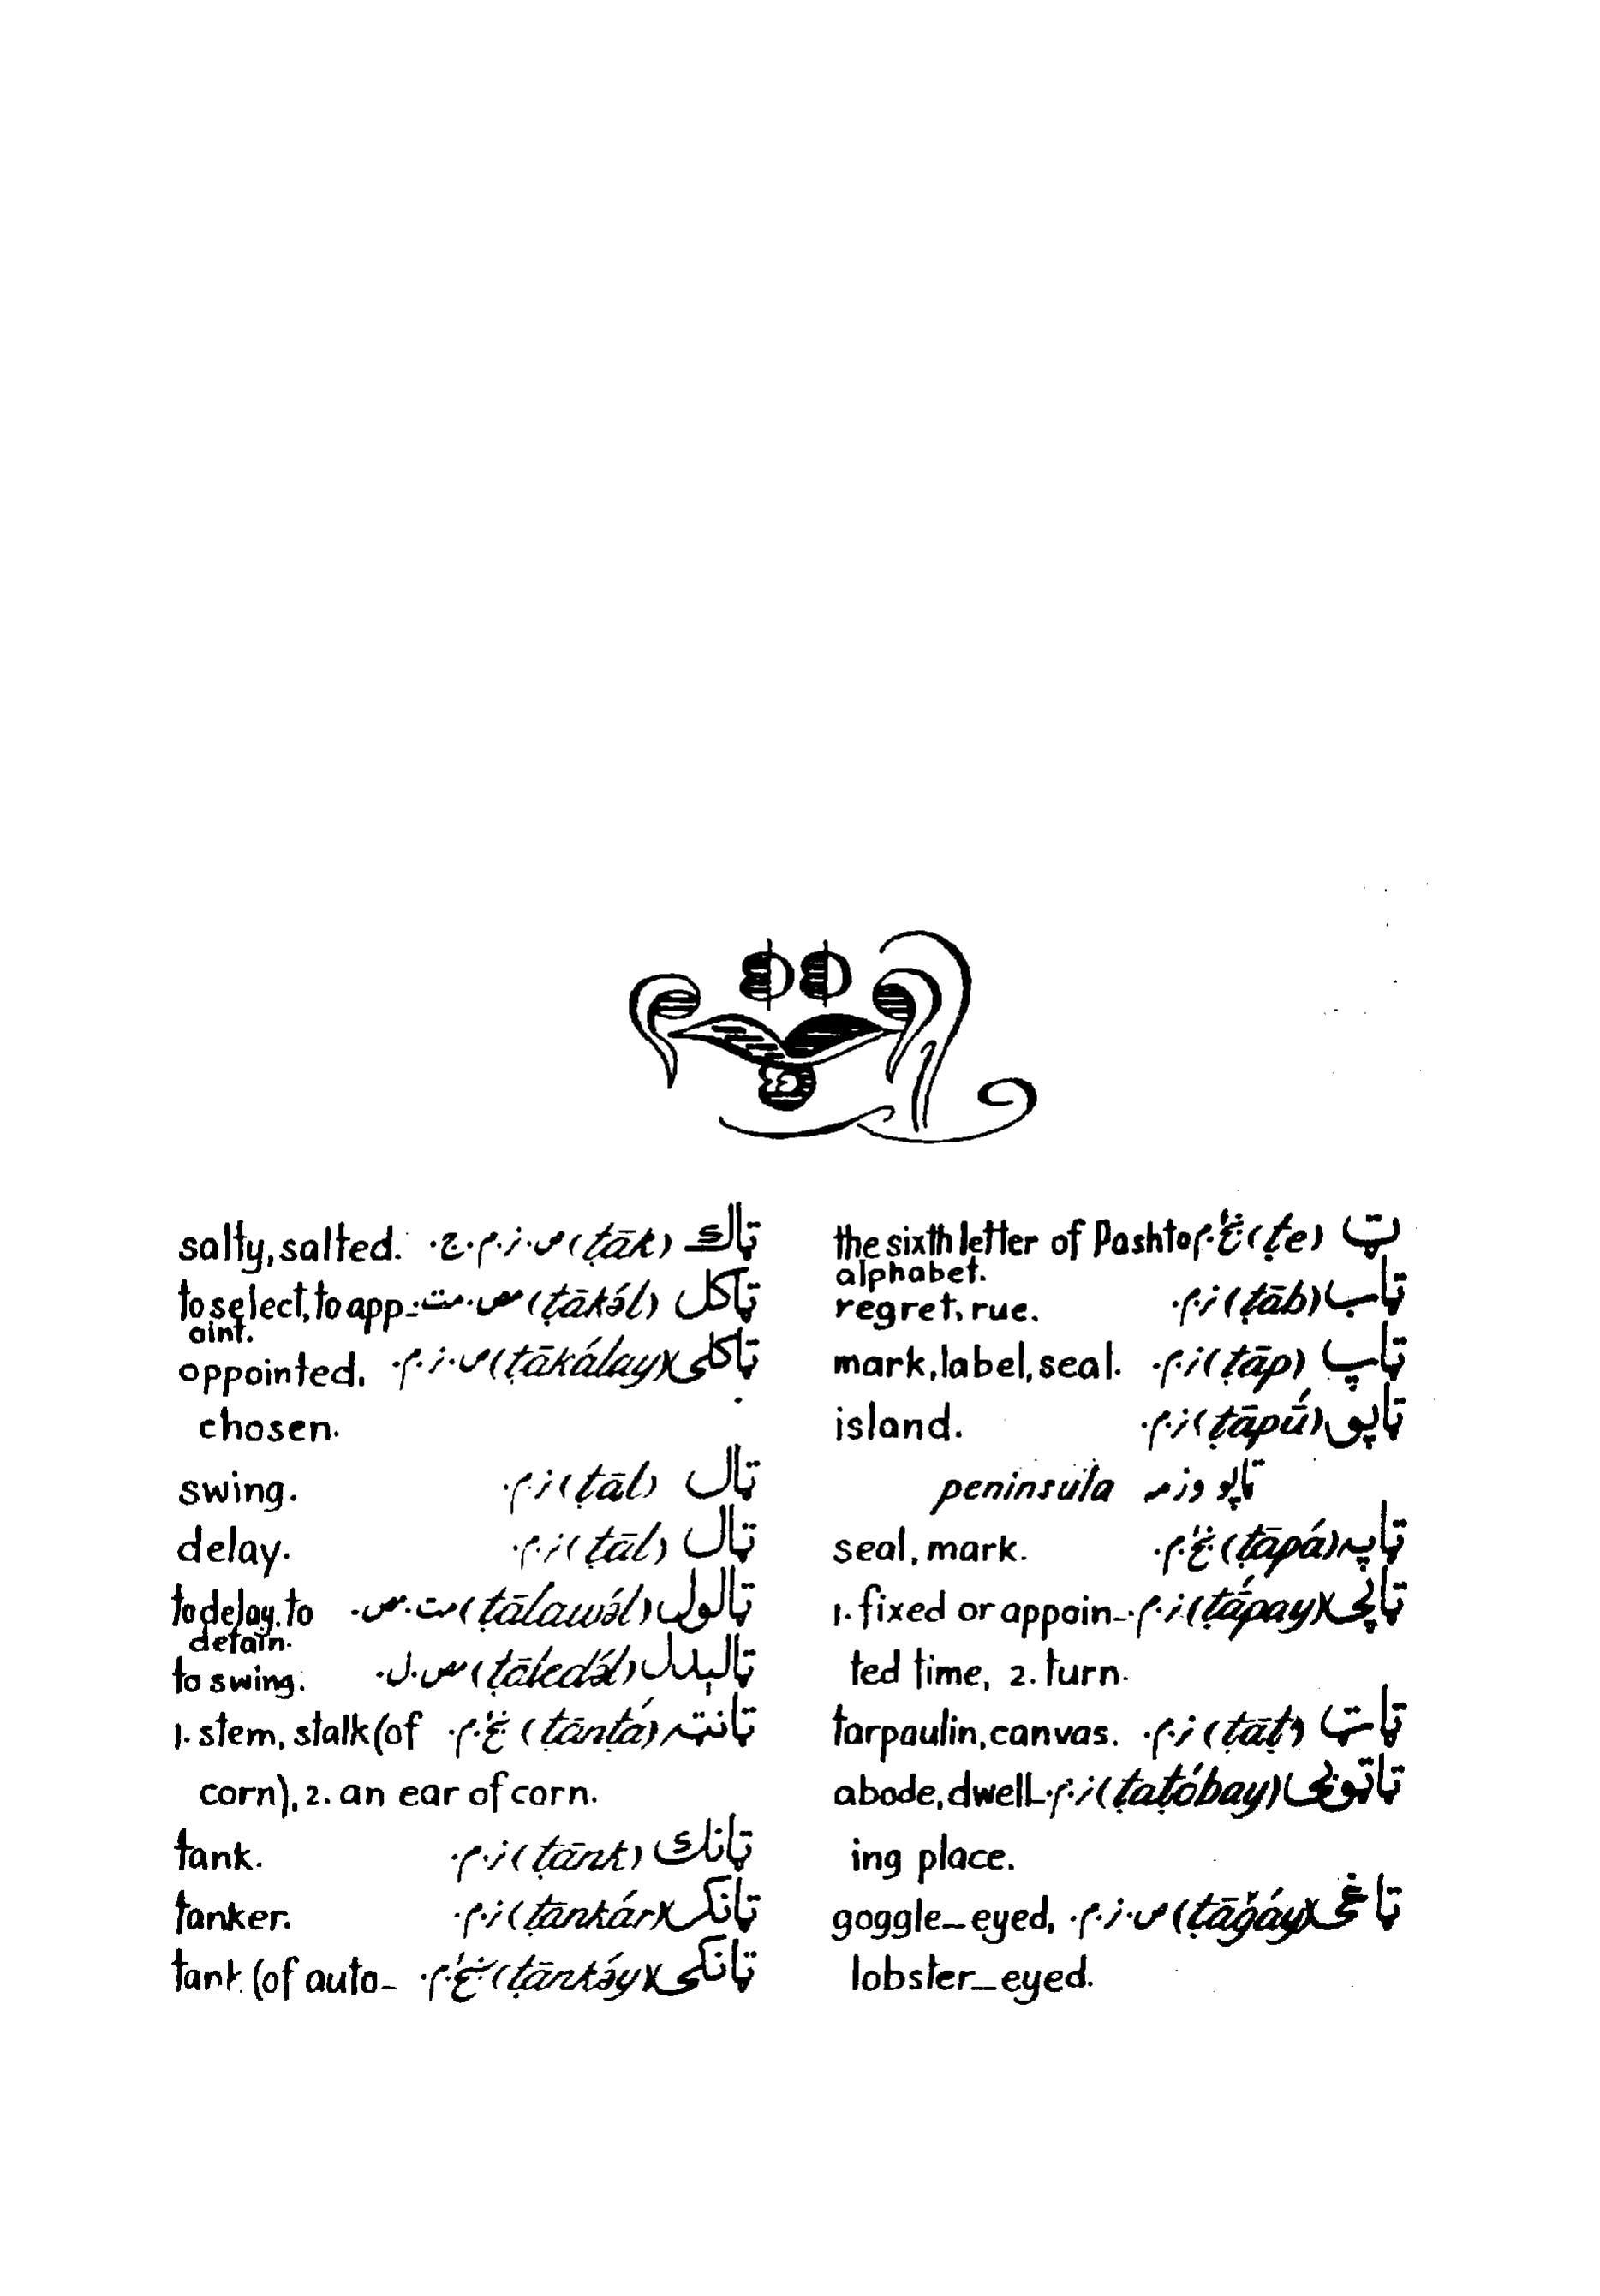 ټ (ṭe) غ.م. the sixth letter of Pashto
alphabet.
ټاب (ṭāb) ز.م. regret, rue.
ټاپ (ṭāp) ز.م. mark, label, seal.
ټاپو (ṭāpū́) ز.م. island.
ټاپو وزمه peninsula
ټاپه (ṭāpá) غ.م. seal, mark.
ټاپی (ṭā́pay) ز.م. 1. fixed or appoin-
ted time, 2. turn.
ټاټ (ṭāṭ) ز.م. tarpaulin, canvas.
ټاټوبی (ṭaṭóbay) ز.م. abode, dwell-
ing place.
ټاغی (ṭāǧáy) ص.ز.م. goggle-eyed,
lobster-eyed.
ټاك (ṭāk) ص.ز.م.ج. salty, salted.
ټاکل (ṭākə́l) مص.مت. to select, to app-
oint.
ټاکلی (ṭākálay) ص.ز.م. oppointed,
chosen.
ټال (ṭāl) ز.م. swing.
ټال (ṭāl) ز.م. delay.
ټالول (ṭālawə́l) مت.مص. to delay, to
detain.
ټالېدل (ṭāledə́l) مص.ل. to swing.
ټانټه (ṭānṭá) غ.م. 1. stem, stalk (of
corn), 2. an ear of corn.
ټانك (ṭānk) ز.م. tank.
ټانکر (ṭānkár) ز.م. tanker.
ټانکی (ṭānkə́y) غ.م. tank (of auto-